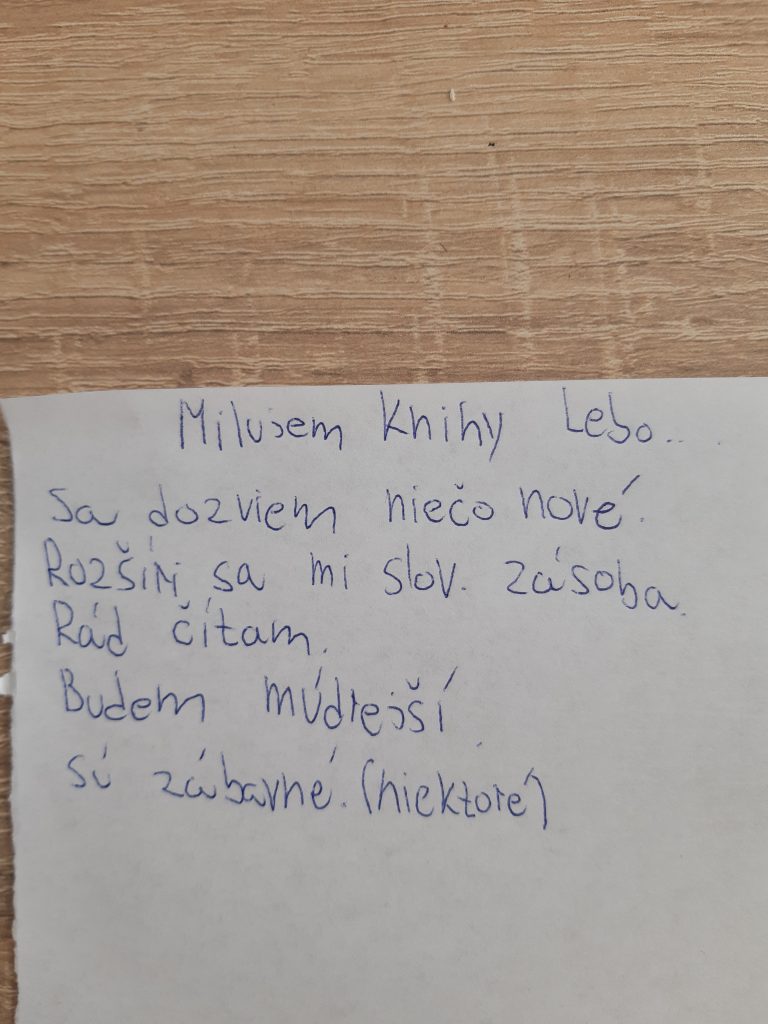 Milujem Knihy Lebo...
sa dozviem niečo nové.
Rozšíri sa mi slov. zásoba.
Rád čítam.
Budem múdrejší
sú zábavné. (niektoré)